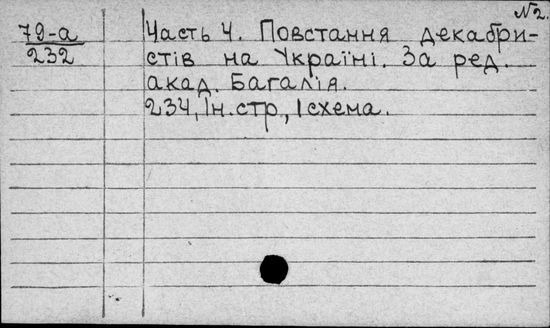 №2.
79-а
232
Часть 4. Повстання декабри-
стів на Україні. За ред.
акад. Багалія.
234, Iн.стр., 1 схема.